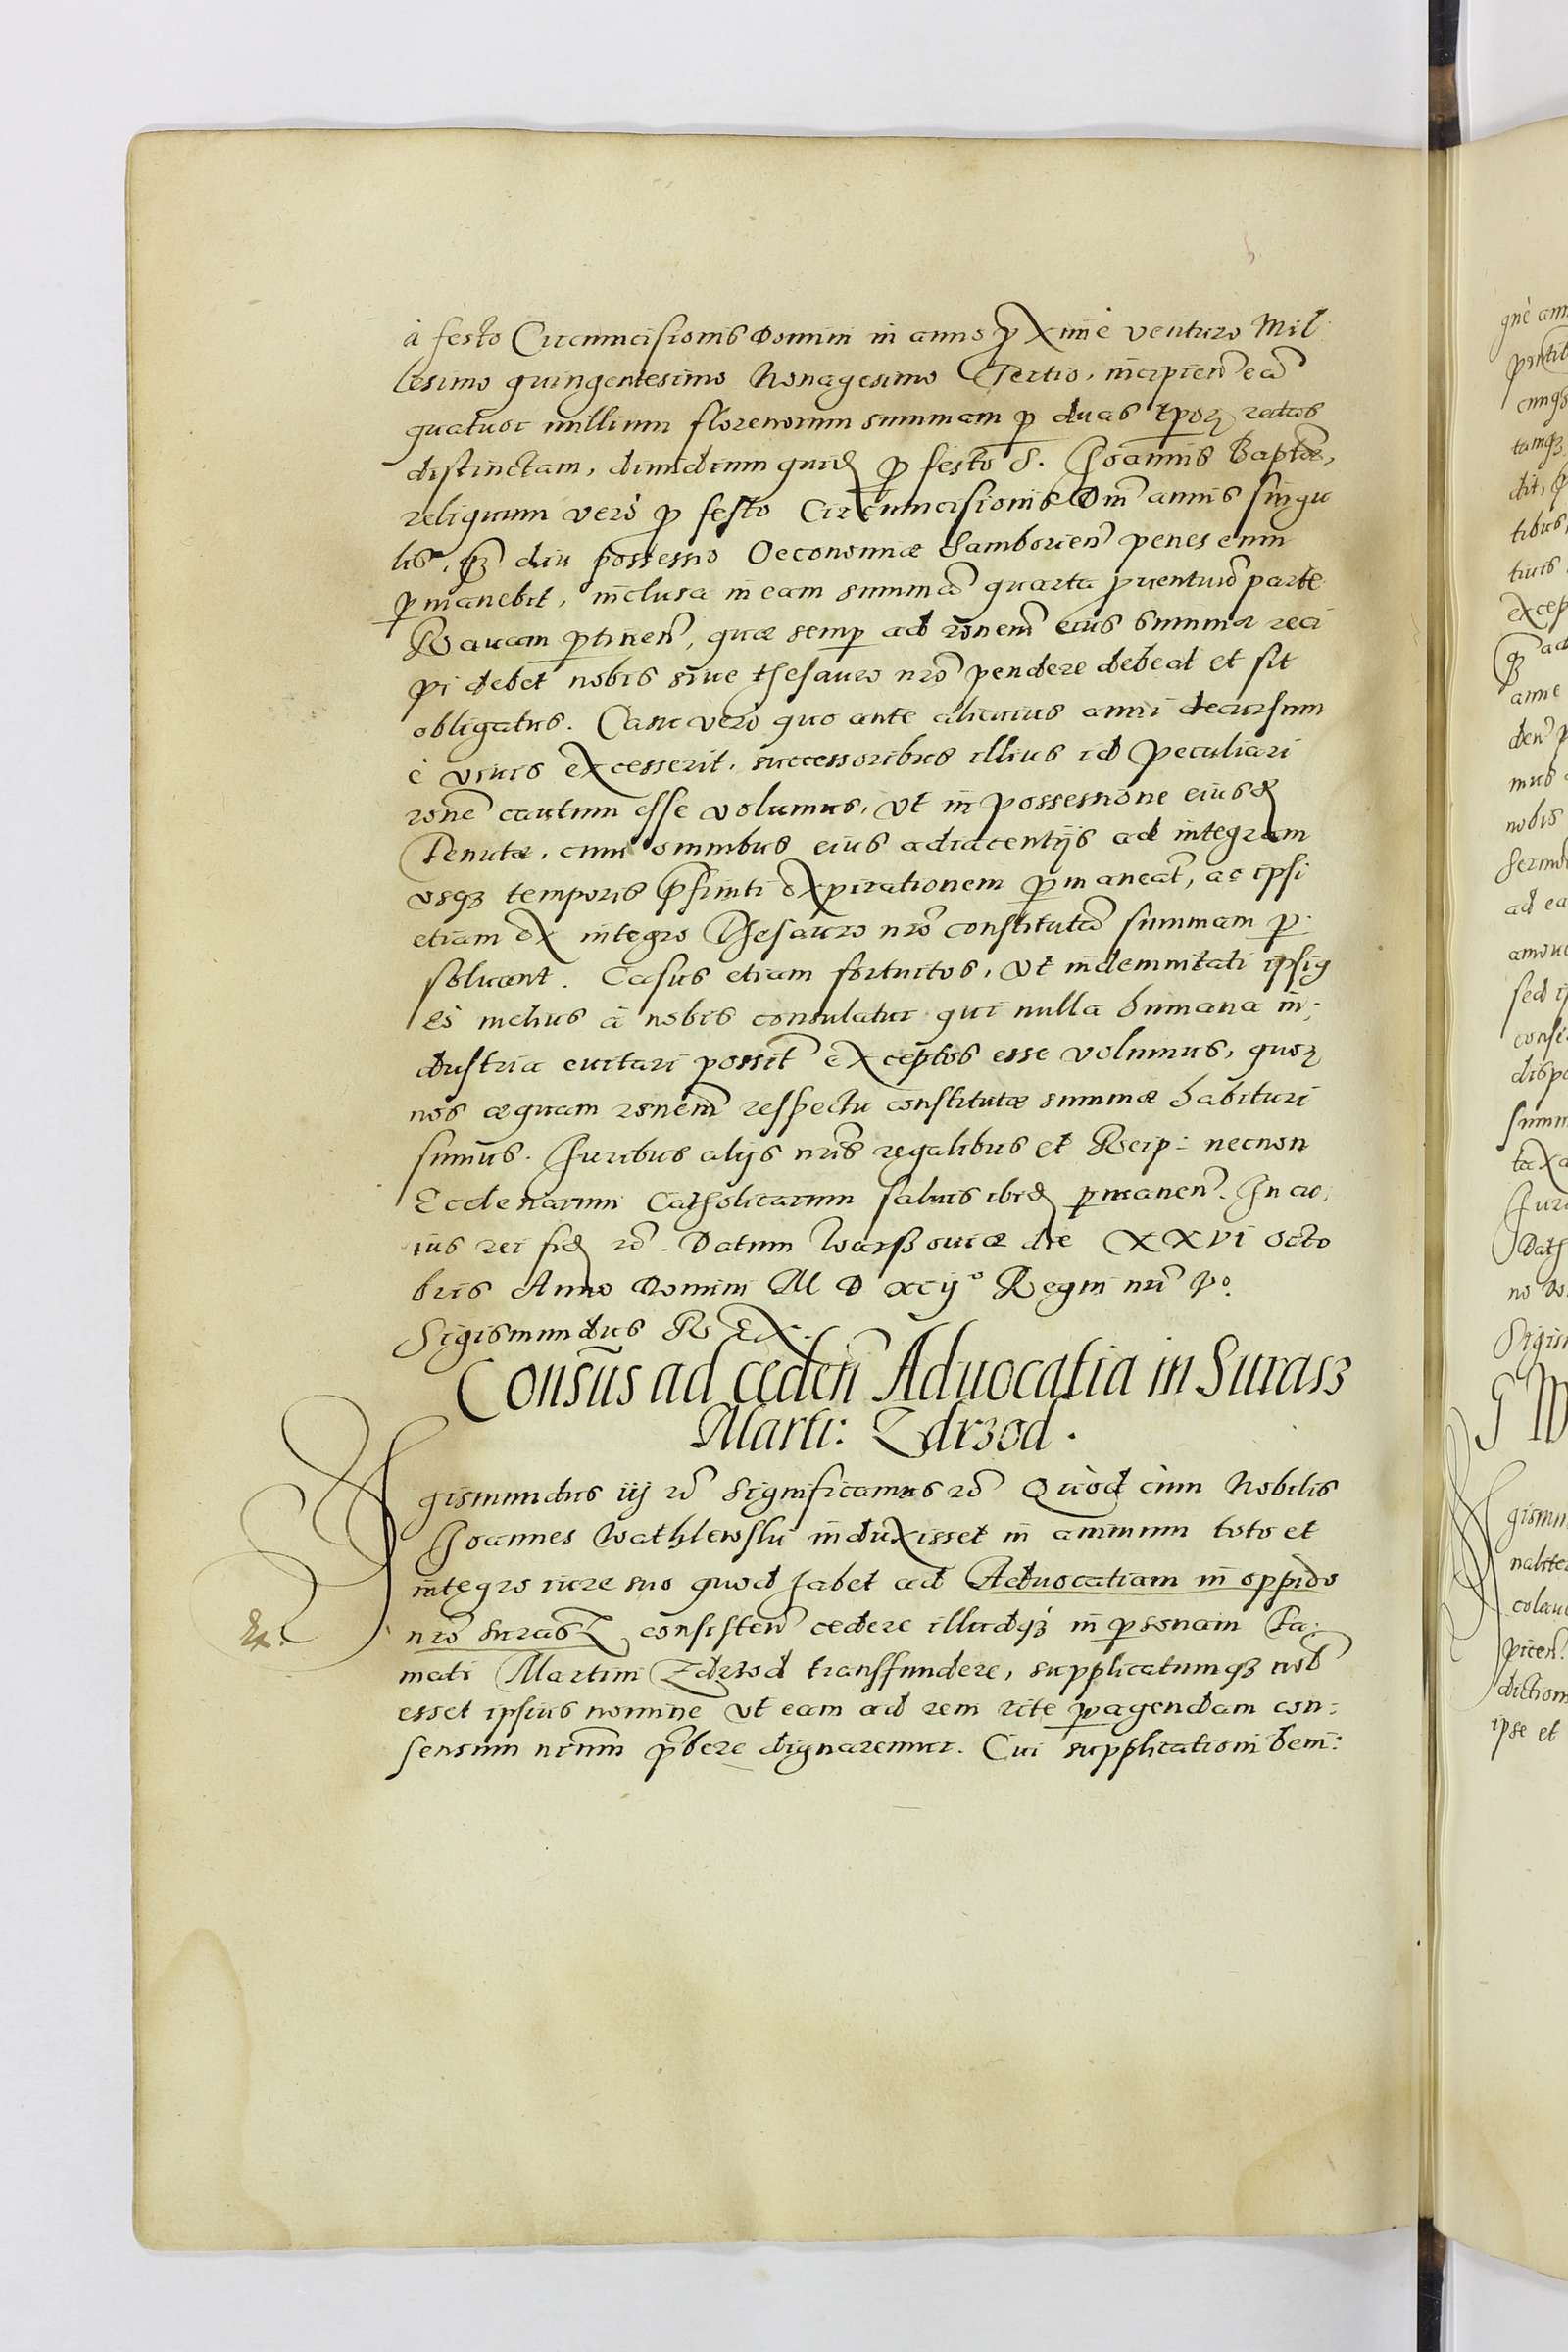 à festo Circumcisionis Domini in anno ꝓximè venturo Mil
lesimo quingentesimo Nonagesimo Tertio, incipien̄ eā
quatuor millium florenorum summam ꝑ duas tꝑoꝝ ratas
distinctam, dimidium quid ꝓ festo S. Joannis Baptæ,
reliquum verò ꝓ festo Circumcisionis Dni annis singu
lis, qꝫ diu possessio Oeconomiæ Samborien̄ penes eum
ꝑmanebit, inclusa in eam summā quarta ꝓuentuū parte
Rauam ꝑtinen̄, quæ semꝑ ad rōnem eius summæ reci
pi debet nobis siue thesauro nrō pendere debeat et sit
obligatus. Casu vero quo ante alicuius anni decursum
è viuis excesserit, successoribus illius id peculiari
rōne cautum esse volumus, vt in possessione eiusd
Tenutæ, cum omnibus eius adiacentijs ad integram
vsqꝫ temporis p̄finiti expirationem ꝑmaneāt, ac ipsi
etiam ex integro Thesauro nrō constitutā summam ꝑ
soluant. Casus etiam fortuitos, vt indemnitati ipsiꝰ
eò melius à nobis consulatur qui nulla humana in:
dustria euitari possit exceptos esse volumus, quoꝝ
nos æquam rōnem respectu constitutæ summæ habituri
sumus. Juribus alijs nris regalibus et Reip: necnon
Ecclesiarum Catholicarum saluis ibid ꝑmanen̄. In cu:
ius rei fid rō. Datum Warssouiæ die XXVI Octo
bris Anno Domini M D XCijº Regni nri Vº.
Sigismundus REX.
Consūs ad ceden̄ Aduocatia in Surasz
Marti: Zdrzod.
Sigismundus iij rō Significamus rō Quòd cùm Nobilis
Joannes Wathlewski induxisset in animum toto et
integro iure suo quod habet ad Aduocatiam in oppido
nrō Surasz consisten̄ cedere illudqꝫ in ꝑsonam Fa:
mati Martini Zdrzod transfundere, supplicatumqꝫ nob
esset ipsius nomine vt eam ad rem rite ꝑagendam con:
sensum nrum p̄bere dignaremur. Cui supplicationi bem: